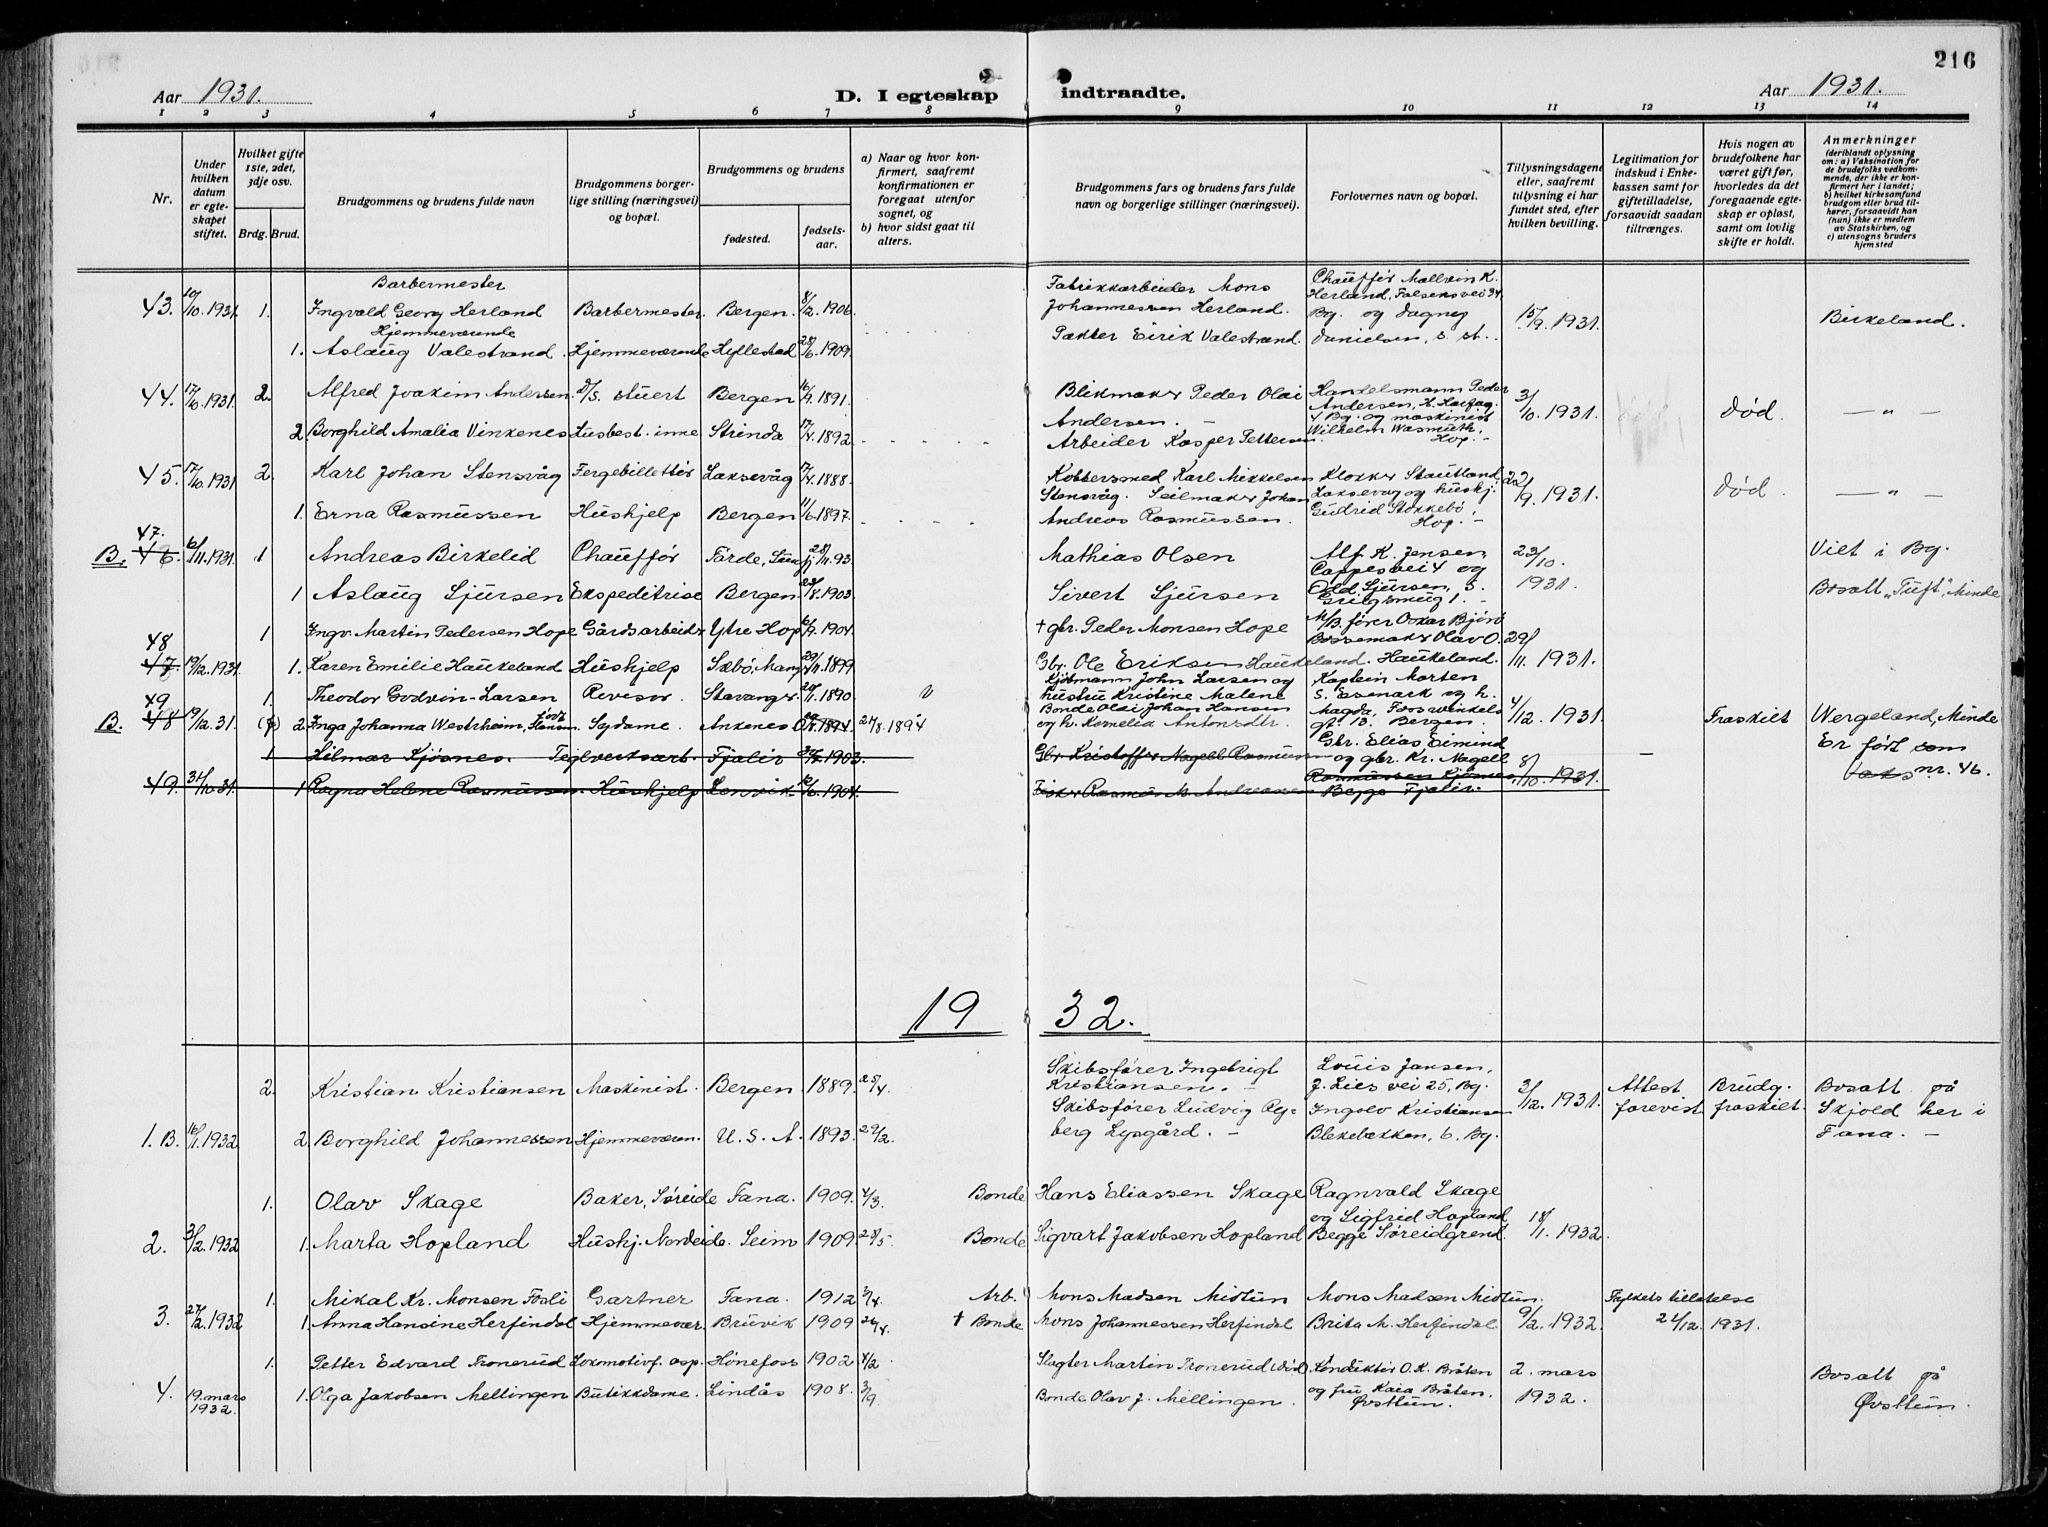 216
Aar 1931.
D. I egteskap indtraadte.
Aar 1931.
1 2 3 4 5 6 7 8 9 10 11 12 13 14
Nr.
Under hvilken datum er egteskapet stiftet.
Hvilket gifte 1ste, 2det, 3dje osv.
Brdg. Brud.
Brudgommens og brudens fulde navn
Brudgommens borgerlige stilling (næringsvei) og bopæl.
Brudgommens og brudens
fødested.
fødselsaar.
a) Naar og hvor konfirmert, saafremt konfirmationen er foregaat utenfor sognet, og
b) hvor sidst gaat til alters.
Brudgommens fars og brudens fars fulde navn og borgerlige stillinger (næringsvei).
Forlovernes navn og bopæl.
Tillysningsdagene eller, saafremt tillysning ei har fundet sted, efter hvilken bevilling.
Legitimation for indskud i Enkekassen samt for giftetilladelse, forsaavidt saadan tiltrænges.
Hvis nogen av brudefolkene har været gift før, hvorledes da det foregaaende egteskap er opløst, samt om lovlig skifte er holdt.
Anmerkninger
(deriblandt oplysning om: a) Vaksination for de brudefolks vedkommende, der ikke er konfirmert her i landet; b) hvilket kirkesamfund brudgom eller brud tilhører, forsaavidt han (hun) ikke er medlem av Statskirken, og c) utensogns bruders hjemsted
Barbermester
43. 10/10.1931. 1. Ingvald Georg Herland Barbermester. Bergen. 8/2.1906. Fabrikkarbeider Mons Johannessen Herland. Chauffør Mallvin K. Herland, Falsensvei 34 Bg. og Dagny Danielsen, s. st. 15/9.1931. Birkeland.
Hjemmeværende
1. Aslaug Valestrand. Hjemmeværende Hyllestad 28/6.1909. Pakter Eirik Valestrand.
44. 17/10.1931. 2. Alfred Joakim Andersen. D/S. stuert Bergen 16/9.1891. Blikmaker Peder Olai Andersen. Handelsmann Peder Andersen, H. Hårfag. Bg. og maskinist Wilhelm Wasmuth, Hop. 3/10.1931. Død. — " —
2 Borghild Amalia Vinkenes Husbest. inne Strinda 17/4.1892 Arbeider Kasper Pettersen.
45. 17/10.1931 2. Karl Johan Stensvåg Fergebillettør Laksevåg 17/4.1888. Kobbersmed Karl Mikkelsen Stensvåg. Klokker Stautland, Laksevåg og huskj. Gudrid Stokkebø, Hop. 22/9.1931. Død. — " —
1. Erna Rasmussen Hushjelp Bergen 11/6.1897. Seilmaker Johan Andreas Rasmussen.
47.
B. 46. 6/11.1931. 1 Andreas Birkelid Chauffør Førde, Sunnfj. 28/11.93. Mathias Olsen Alf K. Jensen, Cappesvei 4 og Odd Sjursen, S. Griegsmug 1. 23/10.1931. Viet i Bg.
1 Aslaug Sjursen Ekspeditrise Bergen 22/8.1903. Sivert Sjursen Bosatt "Tuft", Minde
48
47. 19/12.1931. 1 Ingv. Martin Pedersen Hope Gårdsarbeider Ytre Hop 6/9.1904. + gbr. Peder Monsen Hope M/B. fører Oskar Bjørø Bossemaker Olav O. Haukeland. 29/11.1931.
1. Karen Emilie Haukeland Hushjelp Sæbø, Mang 29/11.1899 Gbr. Ole Eriksen Haukeland.
49
B. 48. 19/12.31. 1. Theodor Godvin-Larsen Revisor. Stavanger 1890 Kjøbmann John Larsen og hustru Kristine Malene Kaptein Morten S. Esmark og h. Magda, Fosswinkels gt. 13. Bergen. 4/12.1931. Fraskilt Wergeland, Minde
2 Inga Johanna Westrheim, født Hansen Sydame. Ankenes 1894 27/8.1894 Bonde Olai Johan Hansen og h. Kornelia Antonsdtr.
1 Hilmar Kjøsnes. Teglverksarb. Fjaler 1903. Gbr. Kristoffer Nagell Rasmussen Gbr. Elias Eimind og gbr. Kr. Nagell Rasmussen Kjøsnes, Begge Fjaler. 8/10.1931. — Er ført som nr. 46.
49. 31/10.31. 1 Ragna Helene Rasmussen. Hushjelp Lenvik 1904. Fisker Rasmus M. Andreassen
1932.
2. Kristian Kristiansen Maskinist. Bergen 1889. 25/4. Skibsfører Ingebrigt Kristiansen. Louis Jansen, J. Lies vei 25, Bg. Ingolv Kristiansen Blekebakken, 6, Bg. 3/12.1931. Attest forevist Brudg. fraskilt. Bosatt på Skjold her i Fana.
1. B. 16/1.1932 2. Borghild Johannessen Hjemmeværen. U. S. A. 1893. 29/2. Skibsfører Ludvig Ryberg Lysgård.
1. Olav Skage Baker, Søreide Fana. 1909. 4/3. Bonde Hans Eliassen Skage Ragnvald Skage og Sigfrid Hopland Begge Søreidgrend. 18/1.1932.
2. 3/2.1932 1. Marta Hopland Huskj. Nordeide. Seim 1909. 28/5 Bonde Sigvart Jakobsen Hopland
1. Mikal Kr. Monsen Fosli Gartner Fana. 1912 3/4. Arb. Mons Madsen Midtun Mons Madsen Midtun. 9/2.1932 Fylkets tillatelse 21/12.1931.
3. 27/2.1932 1. Anna Hansine Herfindal Hjemmevær. Bruvik 1909 26/4. + Bonde Mons Johannessen Herfindal Brita M. Herfindal
1. Petter Edvard Tronerud Lokomotivf. asp. Hønefoss 1902 4/2 Slagter Martin Tronerud død Konduktør O. K. Bråten og fru Kaia Bråten. Øvsttun. 2. mars 1932. Bosatt på Øvsttun.
4. 19. mars 1932. 1. Olga Jakobsen Mellingen Butikkdame. Lindås 1908. 3/9. Bonde Olav J. Mellingen.